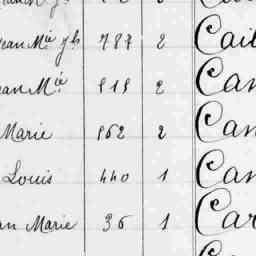 ean Mie jh 787 2 Cail
ean Mie 819 2 Can
Marie 862 2 Can
Louis 440 1 Can
an Marie 36 1 Car